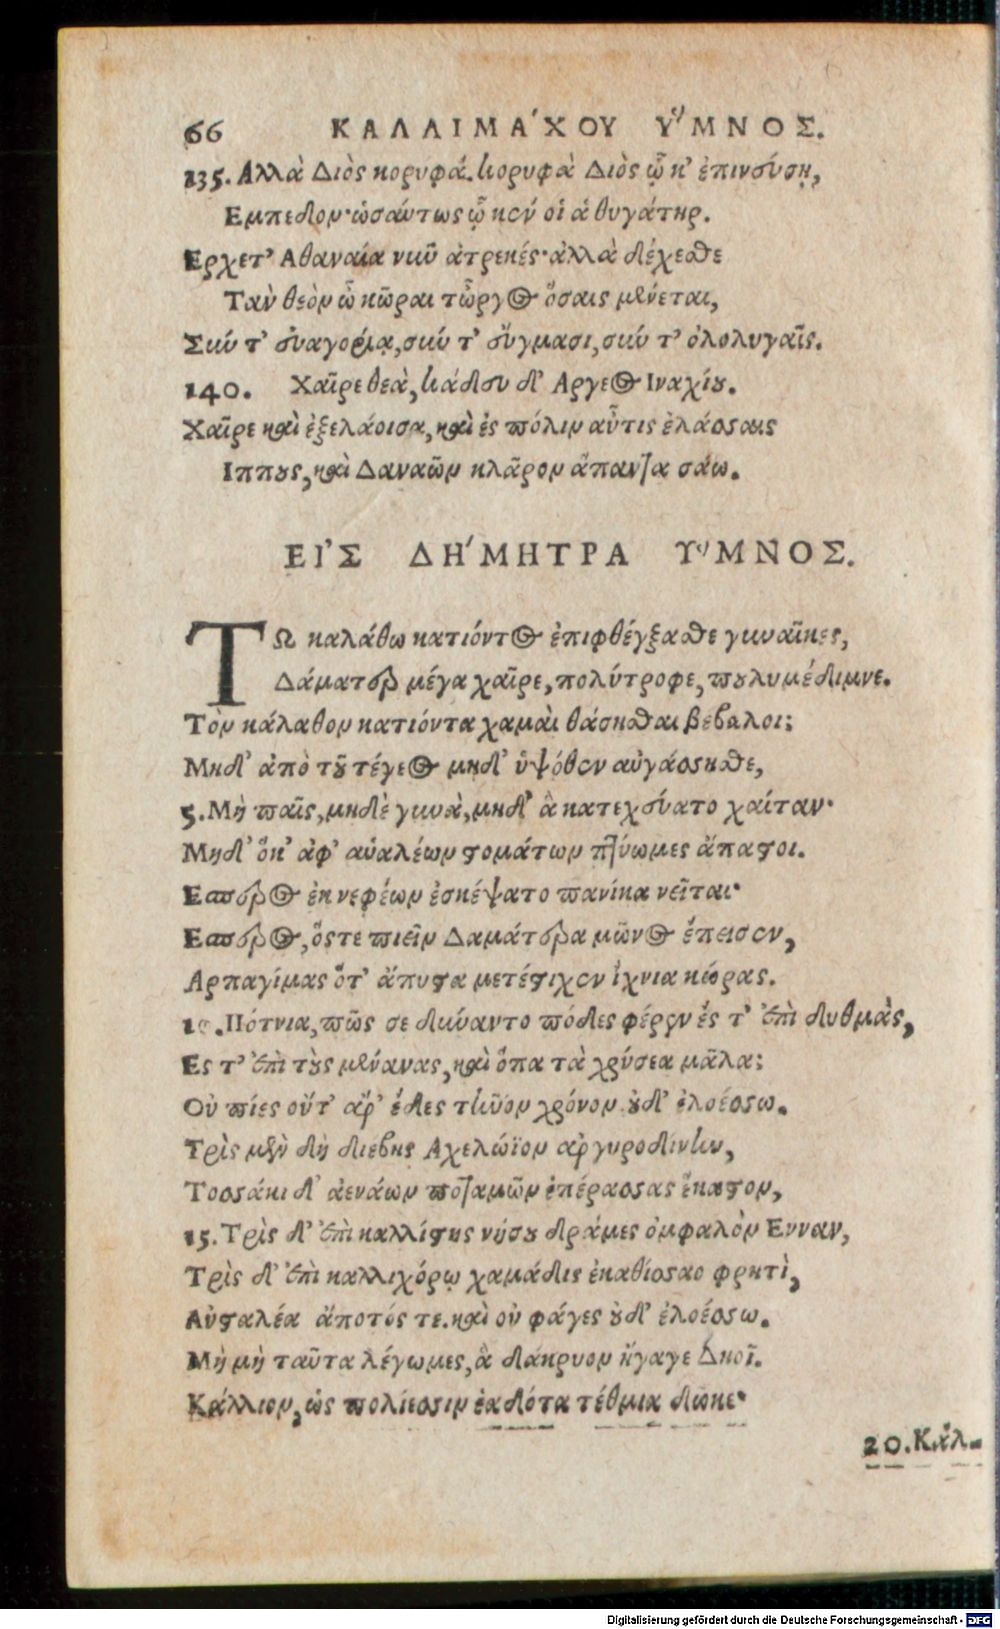 66 ΚΑΛΛΙΜΑ'ΧΟΥ Υ῞ΜΝΟΣ.
135. Αλλὰ Διὸς κορυφά. κορυφὰ Διὸς ᾧ κ' ἐπινεύσῃ,
Εμπεδον· ὡσαύτως ᾧ κεν οἱ ἁ θυγάτηρ.
Ερχετ' Αθαναία νιῦ ἀτρεκές· ἀλλὰ δέχεσθε
Τὰν θεὸν ὦ κῶραι τὦργος ὅσαις μέλεται,
Σύν τ' εὐαγορίᾳ, σύν τ' εὔγμασι, σύν τ' ὀλολυγαῖς.
140. Χαῖρε θεὰ, κάδευ δ' Αργεος Ιναχίου.
Χαῖρε καὶ ἐξελάοισα, καὶ ἐς πόλιν αὖτις ἐλάσσαις
Ιππους, καὶ Δαναῶν κλᾶρον ἅπαντα σάω.
ΕΙ'Σ ΔΗ'ΜΗΤΡΑ Υ῞ΜΝΟΣ.
ΤΩ καλάθω κατιόντος ἐπιφθέγξασθε γυναῖκες,
Δάματερ μέγα χαῖρε, πολύτροφε, πουλυμέδιμνε.
Τὸν κάλαθον κατιόντα χαμαὶ θάσησθαι βέβαλοι;
Μηδ' ἀπὸ τοῦ τέγεος μηδ' ὑψόθεν αὐγάσσησθε,
5. Μὴ παῖς, μηδὲ γυνὰ, μηδ' ἃ κατεχεύατο χαίταν·
Μηδ' ὅκ' ἀφ' αὑαλέων στομάτων πτύωμες ἄπαστοι.
Εσπερος ἐκ νεφέων ἐσκέψατο πανίκα νεῖται·
Εσπερος, ὅστε πιεῖν Δαμάτερα μῶνος ἔπεισεν,
Αρπαγίμας ὅτ' ἄπυστα μετέστιχεν ἴχνια κώρας.
10. Πότνια, πῶς σε δύναντο πόδες φέρεν ἔς τ' ἐπὶ δυθμὰς,
Ες τ' ἐπὶ τοὺς μέλανας, καὶ ὅπα τὰ χρύσεα μᾶλα;
Οὐ πίες οὔτ' αρ' ἔδες τῆνον χρόνον οὐδ' ἐλοέσσω.
Τρὶς μὲν δὴ διέβης Αχελώϊον αργυροδίνην,
Τοσσάκι δ' ἀενάων ποταμῶν ἐπέρασσας ἕκαστον,
15. Τρὶς δ' ἐπὶ καλλίστης νήσου δράμες ὀμφαλὸν Ενναν,
Τρὶς δ' ἐπὶ καλλιχόρῳ χαμάδις ἐκαθίσσαο φρητὶ,
Αὐσταλέα ἄποτός τε. καὶ οὐ φάγες οὐδ' ἐλοέσσω.
Μὴ μὴ ταῦτα λέγωμες, ἃ δάκρυον ἤγαγε Δηοῖ.
Κάλλιον, ὡς πολίεσσιν ἑαδότα τέθμια δῶκε·
20. Κάλ-
Digitalisierung gefördert durch die Deutsche Forschungsgemeinschaft - DFG